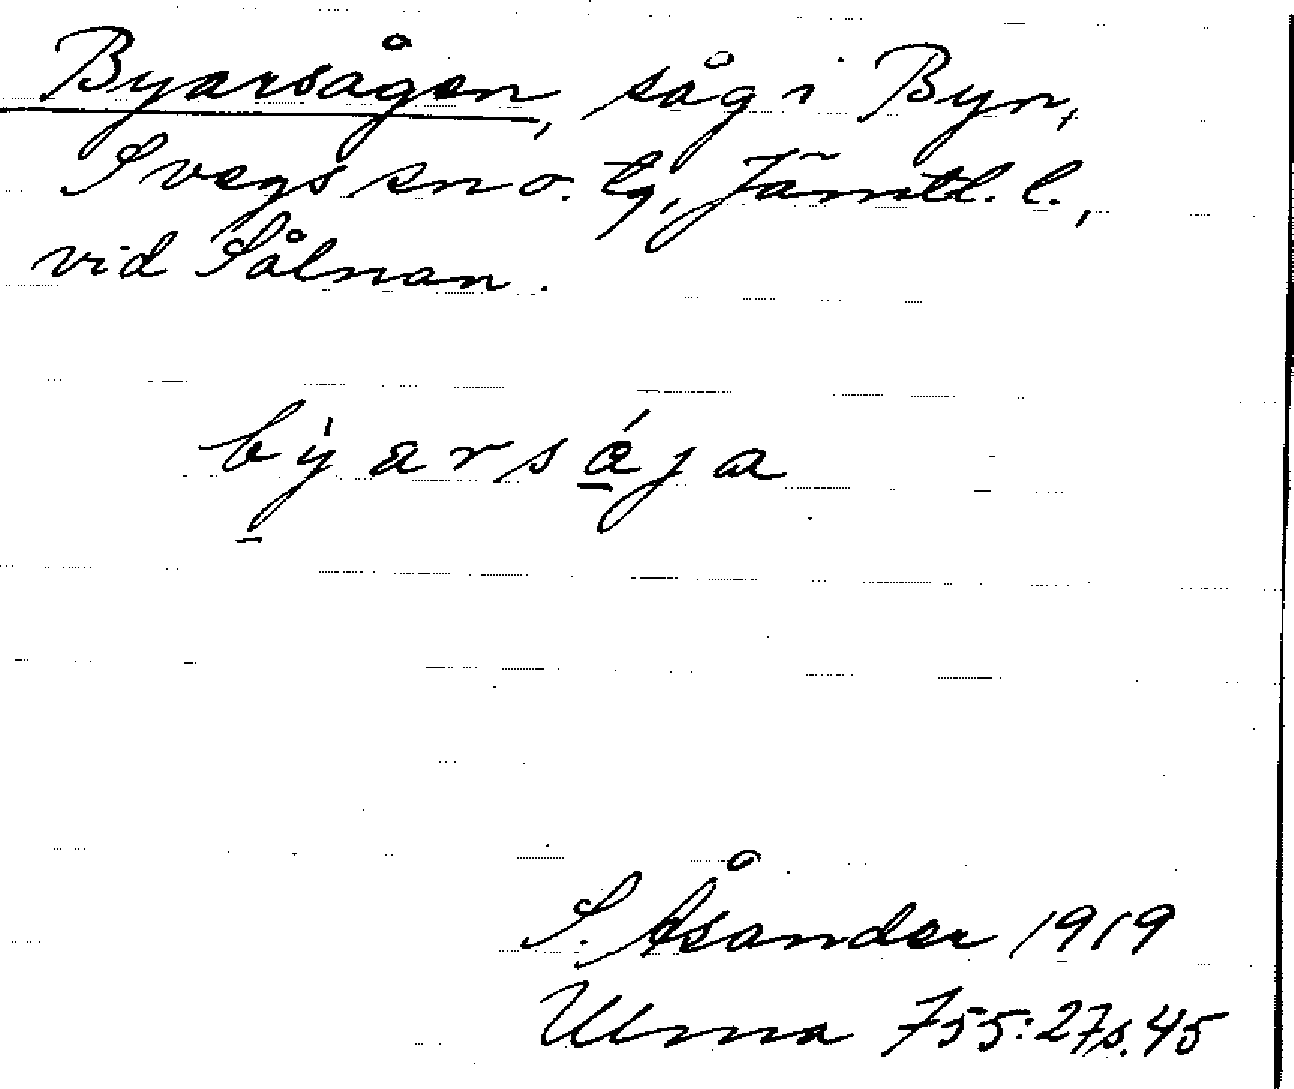 Byarsågen, såg i Byn,
Svegs sn o. tg, Jämtl. l.,
vid Sålnan.
býarsája
S. Åsander 1919
Ulma 755:27 s. 45